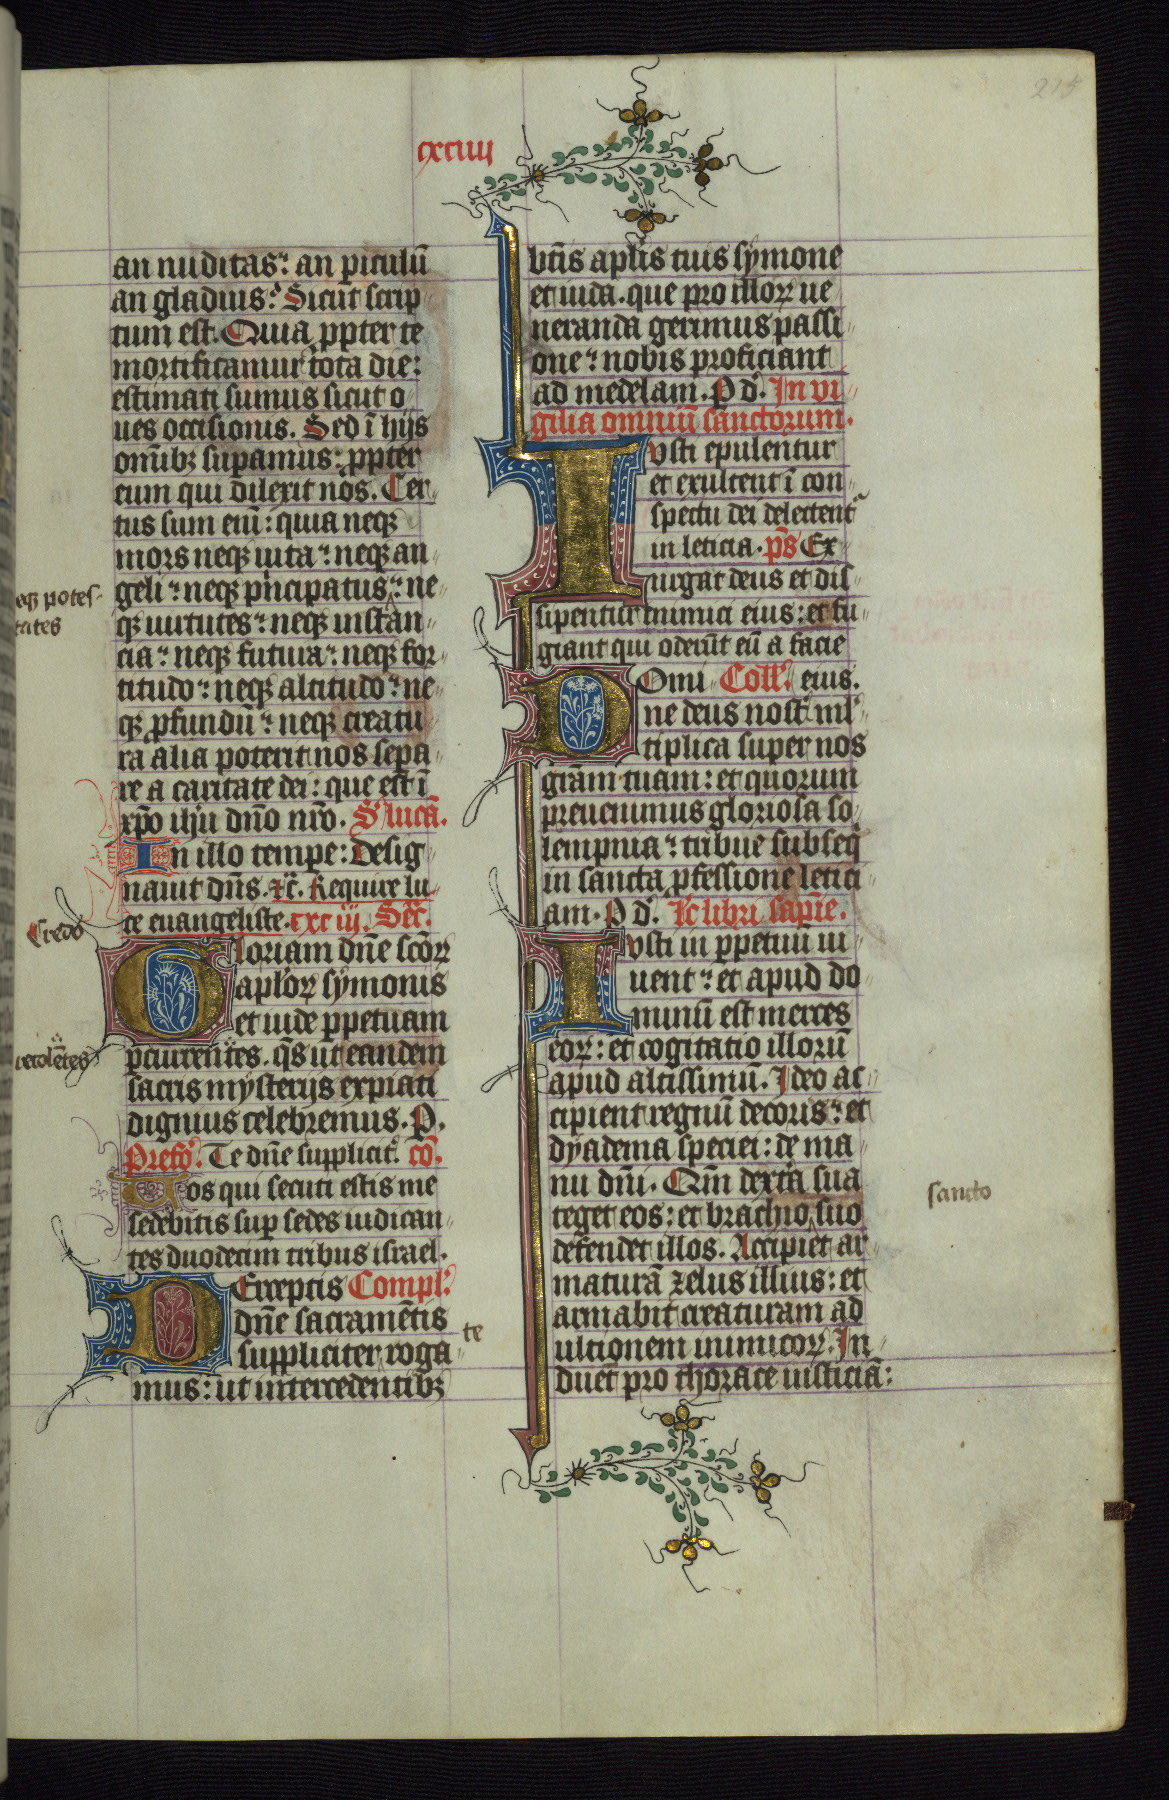 215
cxciiij
an nuditas: an piculū
an gladius: Sicut scrip
tum est. Quia ppter te
mortificamur tota die:
estimati sumus sicut o
ues occisionis. Sed ī hijs
omībꝫ supamus: ppter
eum qui dilexit nos. Cer
tus sum eni: quia neqꝫ
mors neqꝫ uita: neqꝫ an
geli: neqꝫ pncipatus: ne
eqꝫ potes
tates
qꝫ uirtutes: neqꝫ instan
cia: neqꝫ futura: neqꝫ for
titudo: neqꝫ altitudo: ne
qꝫ pfundū: neqꝫ creatu
ra alia poterit nos sepa
re a caritate dei: que est ī
xp̄o ihu dn̄o nr̄o. S lucā.
In illo tempe: Desig
nauit dn̄s. ⁊c̄. Require lu
ce euangeliste. cxciij. Secr̄.
Credo
Gloriam dn̄e scōꝝ
aplōꝝ symonis
et iude ppetuam
recolētes
pcurrentes. qs̄ ut eandem
sacris mysterijs expiati
dignius celebremus. P.
Prefō. Te dn̄e supplicit. cō.
Uos qui secuti estis me
sedebitis sup sedes iudican
tes duodecim tribus israel.
Perceptis Compl.
dn̄e sacramētis
te
suppliciter roga
mus: ut intercedentibꝫ
btīs aplis tuis symone
et iuda. que pro illoꝝ ue
neranda gerimus passi
one: nobis proficiant
ad medelam. P d. In ui
gilia omniū sanctorum.
Iusti epulentur
et exultent ī con
spectu dei delectent
in leticia. ps Ex
urgat deus et dis
sipentur inimici eius: et fu
giant qui oderūt eū a facie
Domi Coll. eius.
ne deus nost̄ ml
tiplica super nos
grām tuam: et quorum
preuenimus gloriosa so
lempnia: tribue subseq
in sancta pfessione letici
am. P d. Lc libri sapīe.
Iusti in ppetuū ui
uent: et apud do
minū est merces
eoꝝ: et cogitatio illorū
apud altissimū. Ideo ac
cipient regnū decoris: et
dyadema speciei: de ma
nu dn̄i. Qm̄ dextra sua
teget eos: et brachio suo
sancto
defendet illos. Accipiet ar
maturā zelus illius: et
armabit creaturam ad
ultionem inimicoꝝ. In
duet pro thorace iusticiā: